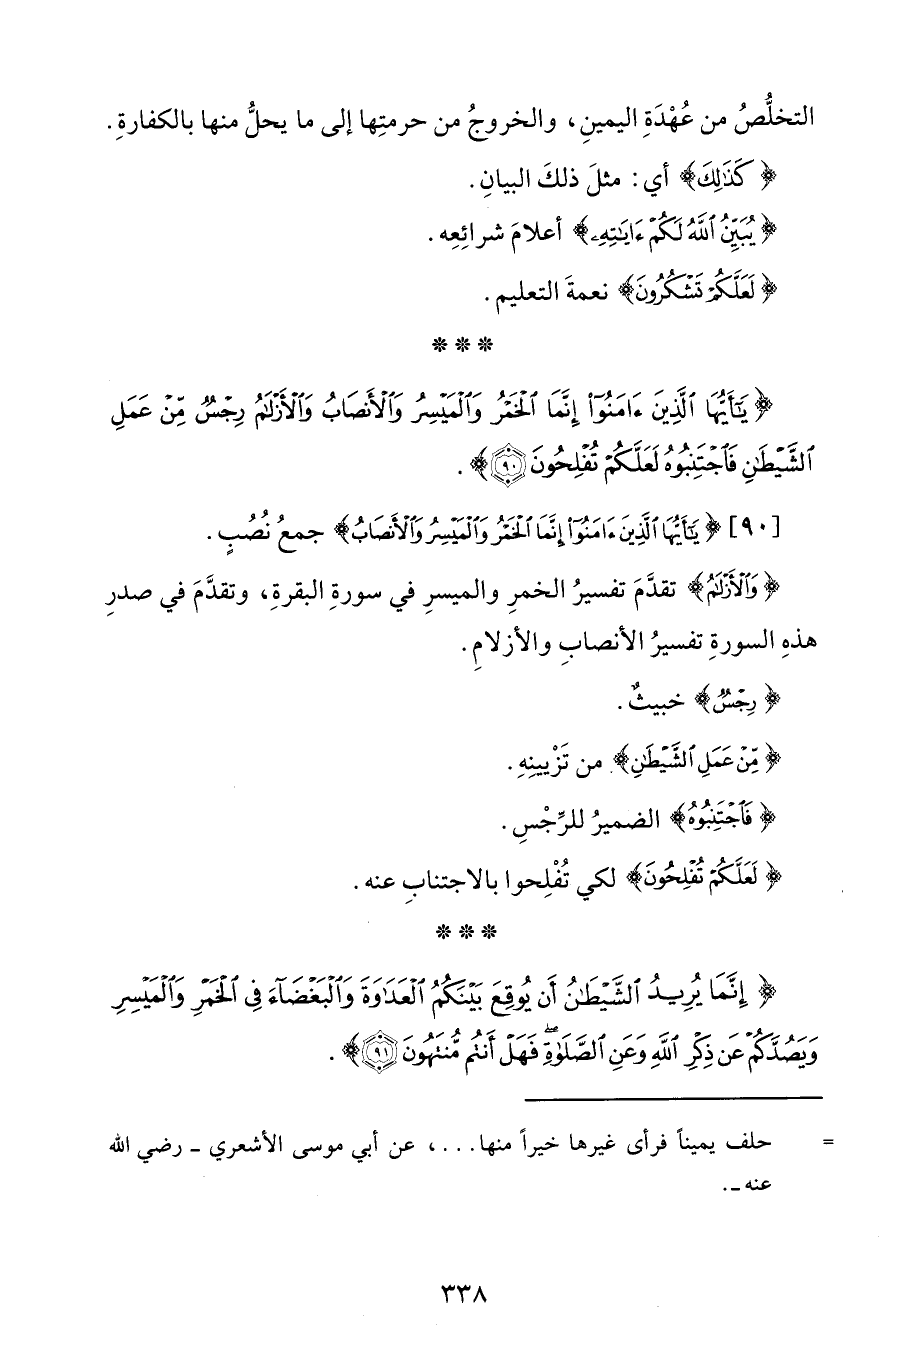 التخلُّصُ من عُهْدَةِ اليمينِ، والخروجُ من حرمتِها إلى ما يحلُّ منها بالكفارةِ.
﴿كَذَٰلِكَ﴾ أي: مثلَ ذلكَ البيانِ.
﴿يُبَيِّنُ ٱللَّهُ لَكُمْ ءَايَٰتِهِۦ﴾ أعلامَ شرائِعِه.
﴿لَعَلَّكُمْ تَشْكُرُونَ﴾ نعمةَ التعليم.
* * *
﴿يَٰٓأَيُّهَا ٱلَّذِينَ ءَامَنُوٓا۟ إِنَّمَا ٱلْخَمْرُ وَٱلْمَيْسِرُ وَٱلْأَنصَابُ وَٱلْأَزْلَٰمُ رِجْسٌ مِّنْ عَمَلِ
ٱلشَّيْطَٰنِ فَٱجْتَنِبُوهُ لَعَلَّكُمْ تُفْلِحُونَ ٩٠﴾.
[٩٠] ﴿يَٰٓأَيُّهَا ٱلَّذِينَ ءَامَنُوٓا۟ إِنَّمَا ٱلْخَمْرُ وَٱلْمَيْسِرُ وَٱلْأَنصَابُ﴾ جمعُ نُصُبٍ.
﴿وَٱلْأَزْلَٰمُ﴾ تقدَّمَ تفسيرُ الخمرِ والميسرِ في سورةِ البقرةِ، وتقدَّمَ في صدرِ
هذهِ السورةِ تفسيرُ الأنصابِ والأزلامِ.
﴿رِجْسٌ﴾ خبيثٌ.
﴿مِّنْ عَمَلِ ٱلشَّيْطَٰنِ﴾ من تَزْيينِهِ.
﴿فَٱجْتَنِبُوهُ﴾ الضميرُ للرِّجْسِ.
﴿لَعَلَّكُمْ تُفْلِحُونَ﴾ لكي تُفْلِحوا بالاجتنابِ عنه.
* * *
﴿إِنَّمَا يُرِيدُ ٱلشَّيْطَٰنُ أَن يُوقِعَ بَيْنَكُمُ ٱلْعَدَٰوَةَ وَٱلْبَغْضَآءَ فِى ٱلْخَمْرِ وَٱلْمَيْسِرِ
وَيَصُدَّكُمْ عَن ذِكْرِ ٱللَّهِ وَعَنِ ٱلصَّلَوٰةِ ۖ فَهَلْ أَنتُم مُّنتَهُونَ ٩١﴾.
= حلف يميناً فرأى غيرها خيراً منها...، عن أبي موسى الأشعري ـ رضي الله
عنه ـ.
٣٣٨